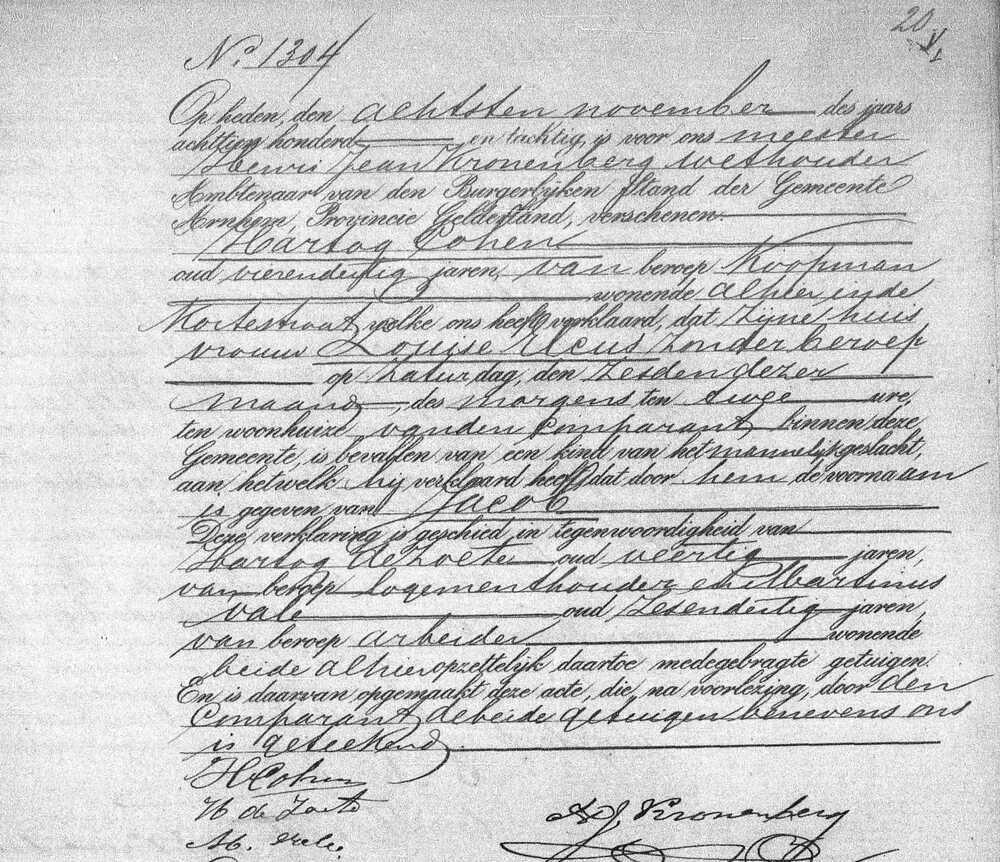 20
No. 1304
Op heden, den achtsten november des jaars
achttien honderd en tachtig, is voor ons meester
Henri Jean Kronenberg wethouder
Ambtenaar van den Burgerlijken Stand der Gemeente
Arnhem, Provincie Gelderland, verschenen
Hartog Cohen
oud vierendertig jaren, van beroep Koopman
wonende alhier in de
Kortestraat, welke ons heeft verklaard, dat zijne huis
vrouw Louise zonder beroep
op zaturdag, den zesden dezer
maand, des morgens ten twee ure,
ten woonhuize van den comparant binnen deze
Gemeente, is bevallen van een kind van het mannelijk geslacht,
aan hetwelk hij verklaard heeft dat door hem de voornaam
is gegeven van Jacob
Deze verklaring is geschied in tegenwoordigheid van
Hartog de Zoete oud veertig jaren,
van beroep logementhouder en Martinus
oud zesendertig jaren,
van beroep arbeider wonende
beide alhier opzettelijk daartoe medegebragte getuigen.
En is daarvan opgemaakt deze acte, die, na voorlezing, door den
Comparant, de beide getuigen benevens ons
is geteekend.
H Cohen
H de Zoete
M.
HJ Kronenberg